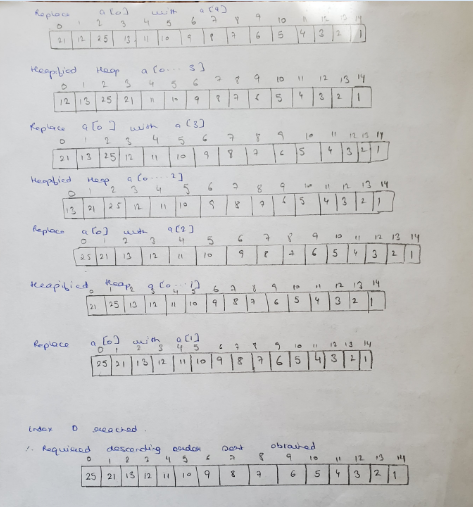 Replace a[0] with a[4]
0 1 2 3 4 5 6 7 8 9 10 11 12 13 14
21 12 25 13 11 10 9 8 7 6 5 4 3 2 1
Heapified Heap a[0...3]
0 1 2 3 4 5 6 7 8 9 10 11 12 13 14
12 13 25 21 11 10 9 8 7 6 5 4 3 2 1
Replace a[0] with a[3]
0 1 2 3 4 5 6 7 8 9 10 11 12 13 14
21 13 25 13 11 10 9 8 7 6 5 4 3 2 1
Heapified Heap a[0...2]
0 1 2 3 4 5 6 7 8 9 10 11 12 13 14
13 21 25 12 11 10 9 8 7 6 5 4 3 2 1
Replace a[0] with a[2]
0 1 2 3 4 5 6 7 8 9 10 11 12 13 14
25 21 13 12 11 10 9 8 7 6 5 4 3 2 1
Heapified Heap a[0...1]
0 1 2 3 4 5 6 7 8 9 10 11 12 13 14
21 25 13 12 11 10 9 8 7 6 5 4 3 2 1
Replace a[0] with a[1]
0 1 2 3 4 5 6 7 8 9 10 11 12 13 14
25 21 13 12 11 10 9 8 7 6 5 4 3 2 1
Index 0 reached.
∴ Required descending order sort obtained
0 1 2 3 4 5 6 7 8 9 10 11 12 13 14
25 21 13 12 11 10 9 8 7 6 5 4 3 2 1